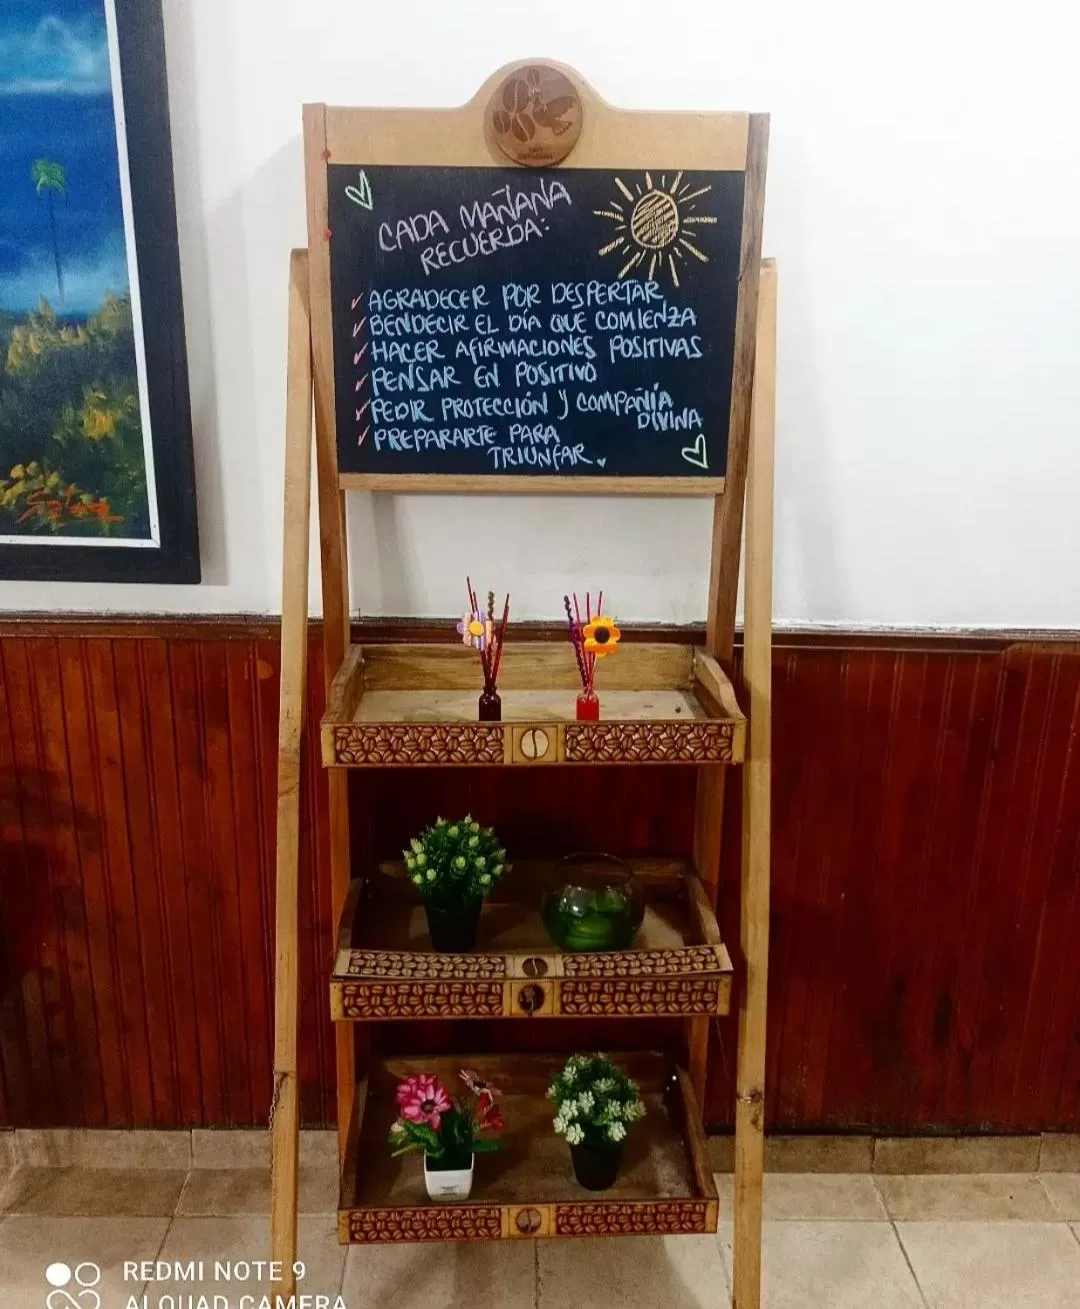 CADA MAÑANA
RECUERDA:
AGRADECER POR DESPERTAR
BENDECIR EL DÍA QUE COMIENZA
HACER AFIRMACIONES POSITIVAS
PENSAR EN POSITIVO
PEDIR PROTECCIÓN Y COMPAÑÍA
DIVINA
PREPARARTE PARA
TRIUNFAR.
REDMI NOTE 9
AI QUAD CAMERA